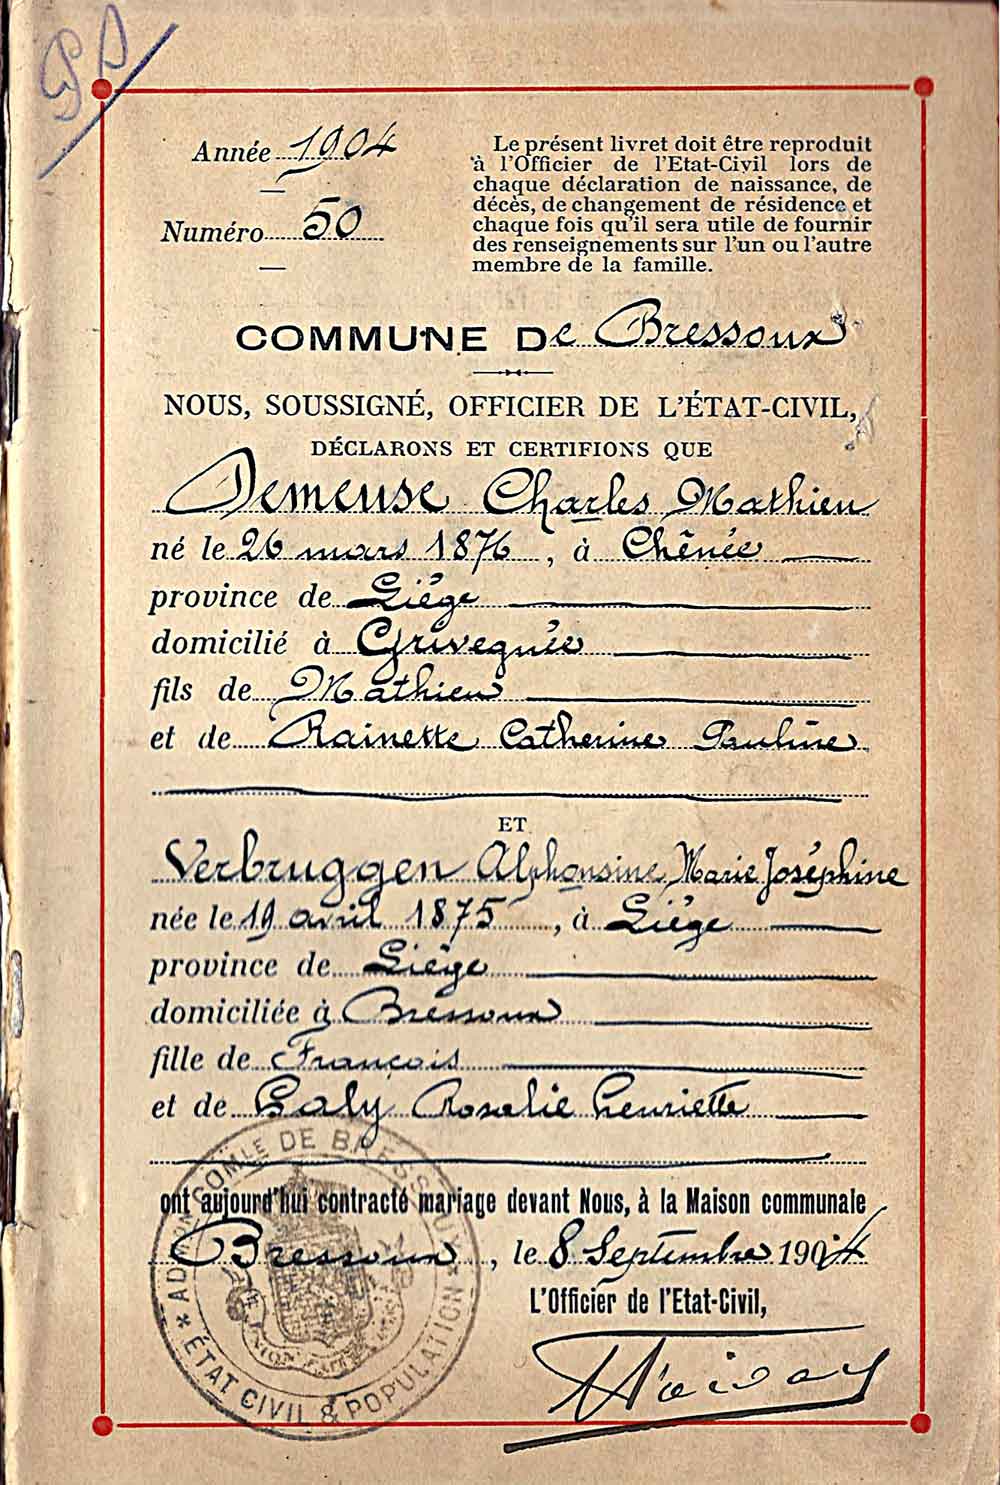 Année 1904
Numéro 50
Le présent livret doit être reproduit
à l'Officier de l'Etat-Civil lors de
chaque déclaration de naissance, de
décès, de changement de résidence et
chaque fois qu'il sera utile de fournir
des renseignements sur l'un ou l'autre
membre de la famille.
COMMUNE De Bressoux
NOUS, SOUSSIGNÉ, OFFICIER DE L'ÉTAT-CIVIL,
DÉCLARONS ET CERTIFIONS QUE
Demeuse Charles Mathieu
né le 26 mars 1876, à Chênée
province de Liége
domicilié à Grivegnée
fils de Mathieu
et de Rainette Catherine Pauline
ET
Verbruggen Alphonsine Marie Joséphine
née le 19 avril 1875, à Liége
province de Liége
domiciliée à Bressoux
fille de François
et de Galy Rosalie Henriette
ont aujourd'hui contracté mariage devant Nous, à la Maison communale
Bressoux, le 8 Septembre 1904
L'Officier de l'Etat-Civil,
ADMON COMLE DE BRESSOUX
ÉTAT CIVIL & POPULATION